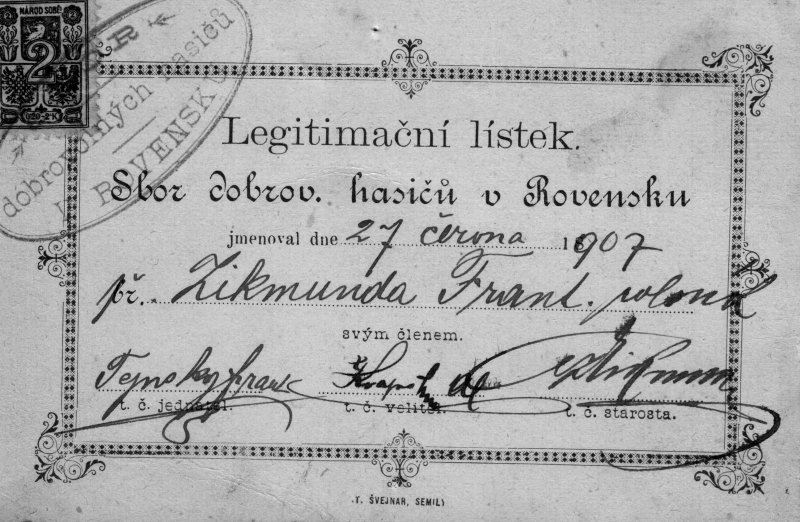 NÁROD SOBĚ
2
SBOR
dobrovolných hasičů
V ROVENSKU
Legitimační lístek.
Sbor dobrov. hasičů v Rovensku
jmenoval dne 27 června 1907
př. Zikmunda Frant.
svým členem.
t. č. jednatel. t. č. velitel. t. č. starosta.
T. ŠVEJNAR, SEMILY